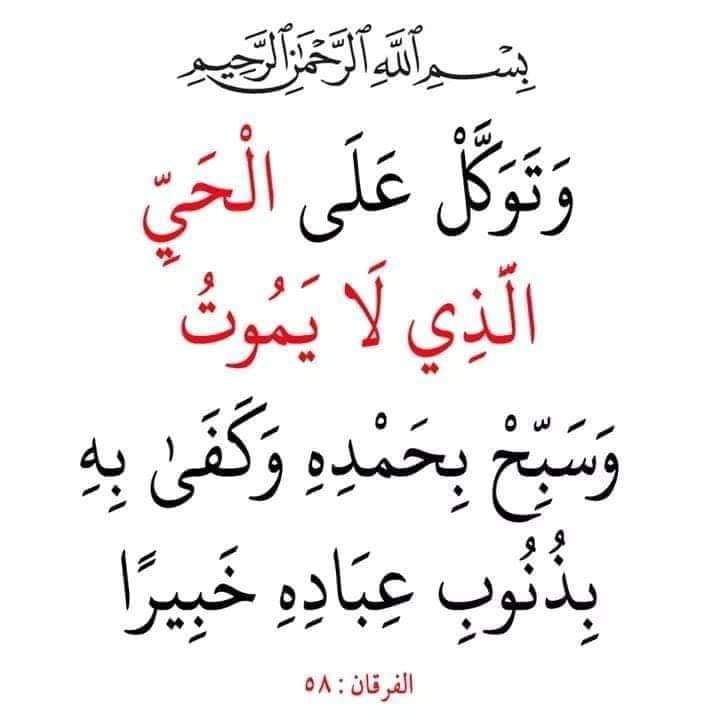 بِسْمِ ٱللَّهِ ٱلرَّحْمَٰنِ ٱلرَّحِيمِ
وَتَوَكَّلْ عَلَى الْحَيِّ
الَّذِي لَا يَمُوتُ
وَسَبِّحْ بِحَمْدِهِ وَكَفَىٰ بِهِ
بِذُنُوبِ عِبَادِهِ خَبِيرًا
الفرقان : ٥٨